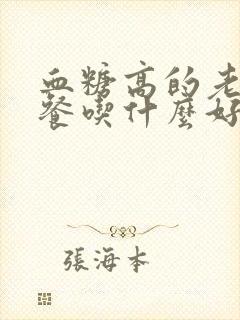 血糖高的老
餐喫什麼好
張海本